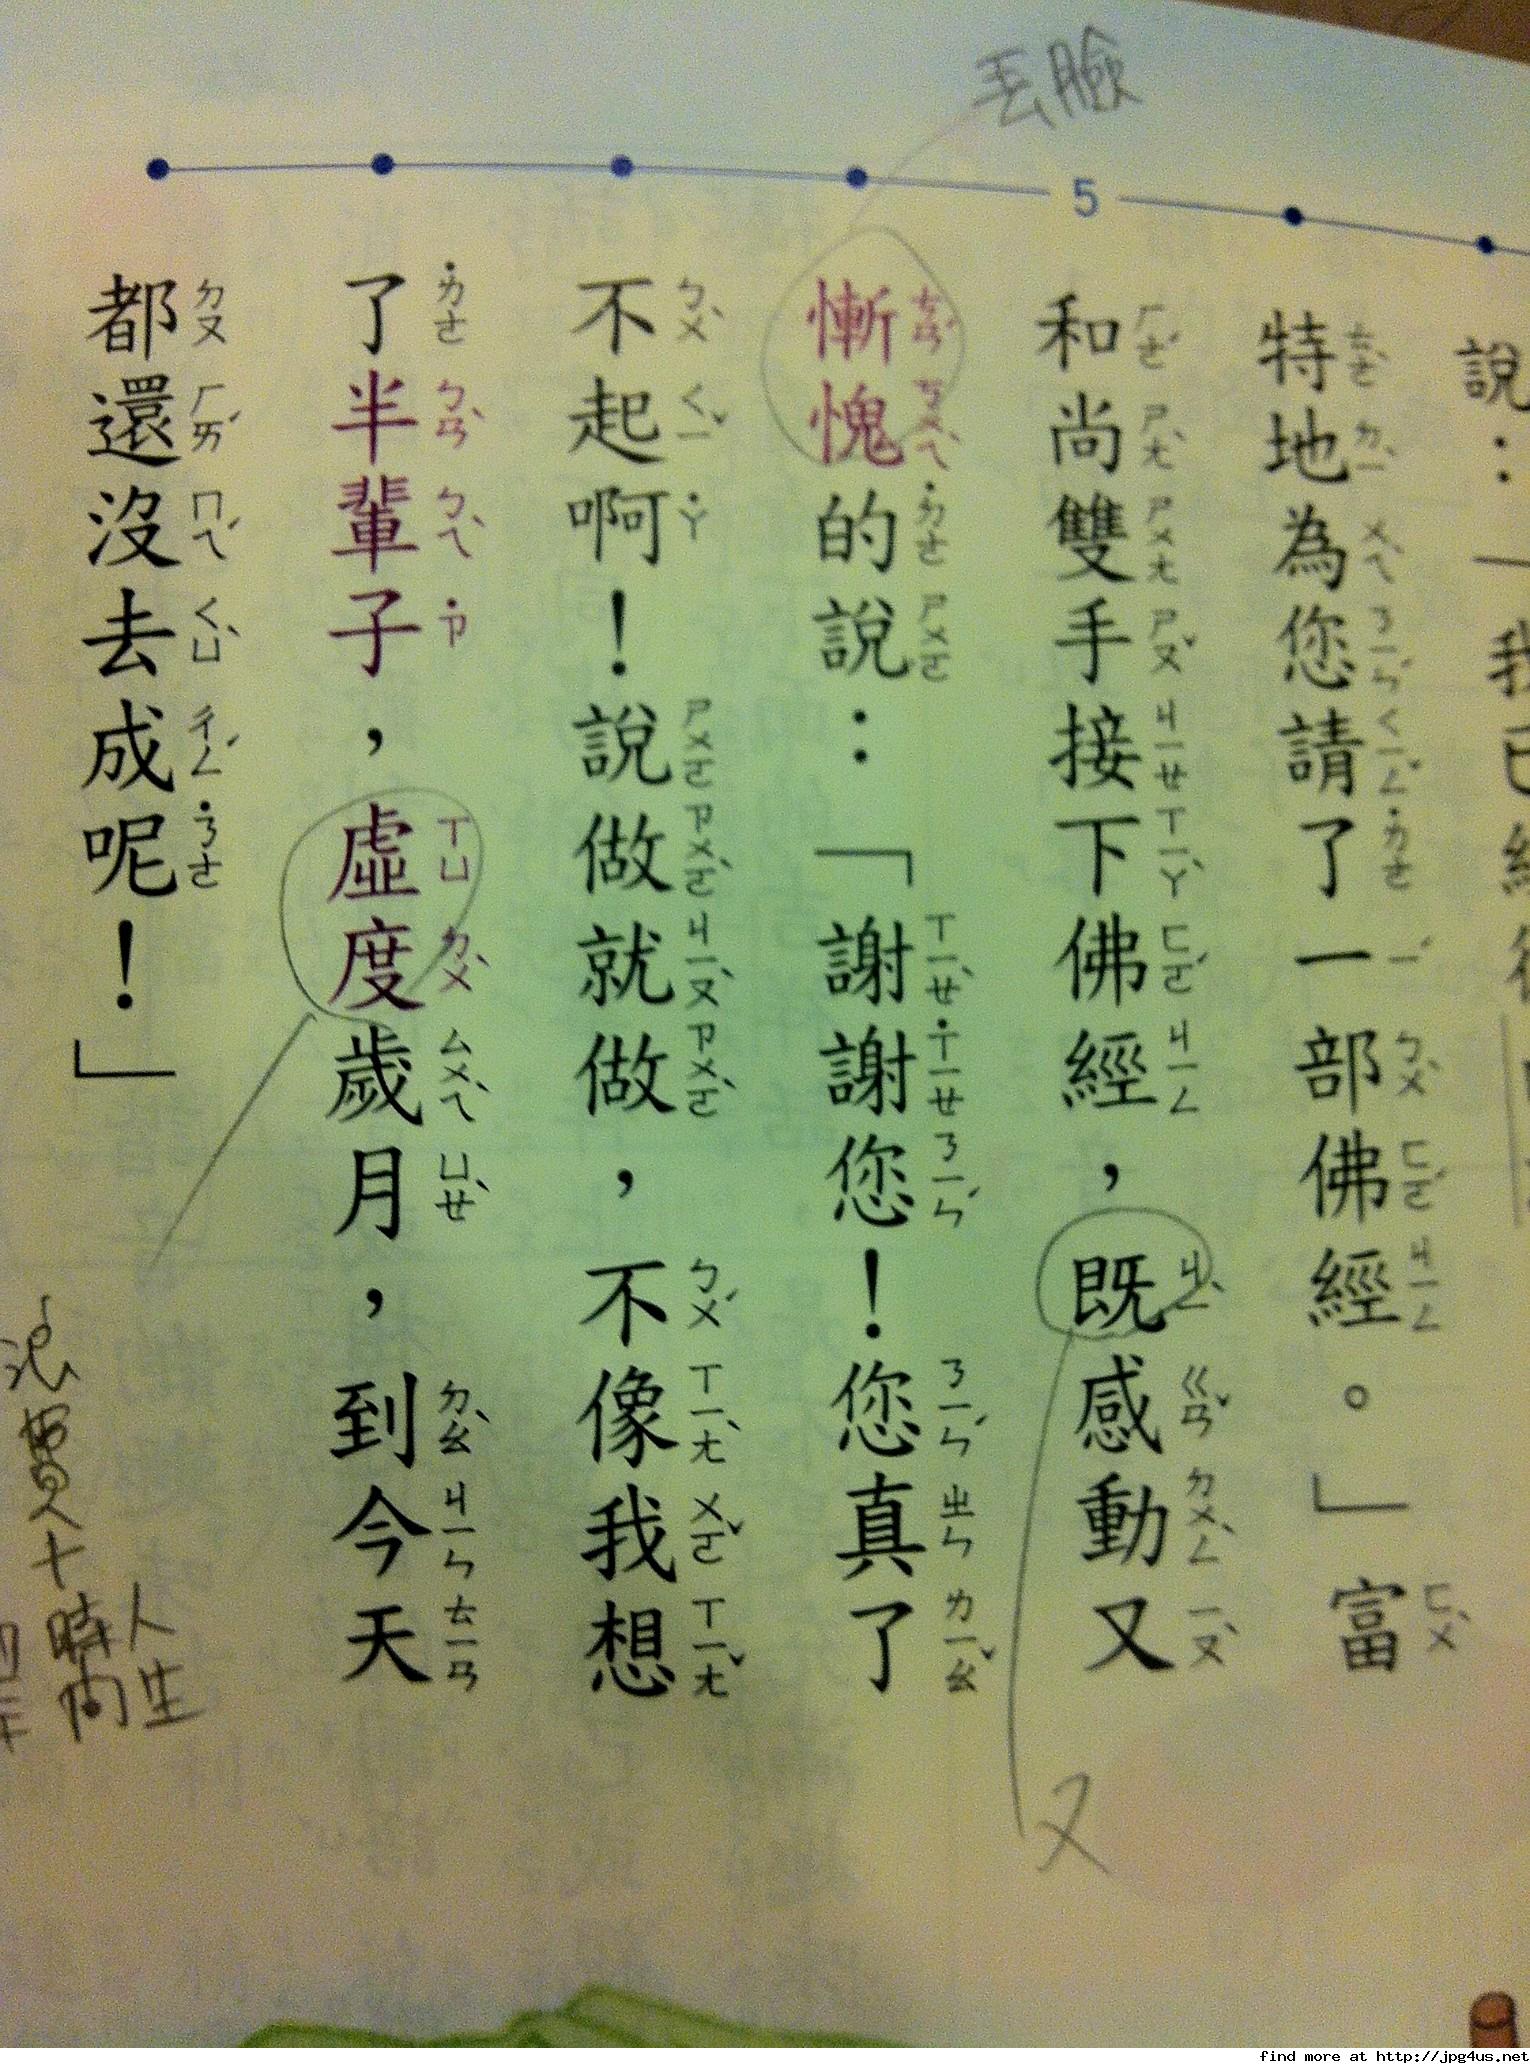 說：「我已經
特地為您請了一部佛經。」富
和尚雙手接下佛經，既感動又
慚愧的說：「謝謝您！您真了
不起啊！說做就做，不像我想
了半輩子，虛度歲月，到今天
都還沒去成呢！」
5
丟臉
又
浪費
時間
人生
find more at http://jpg4us.net